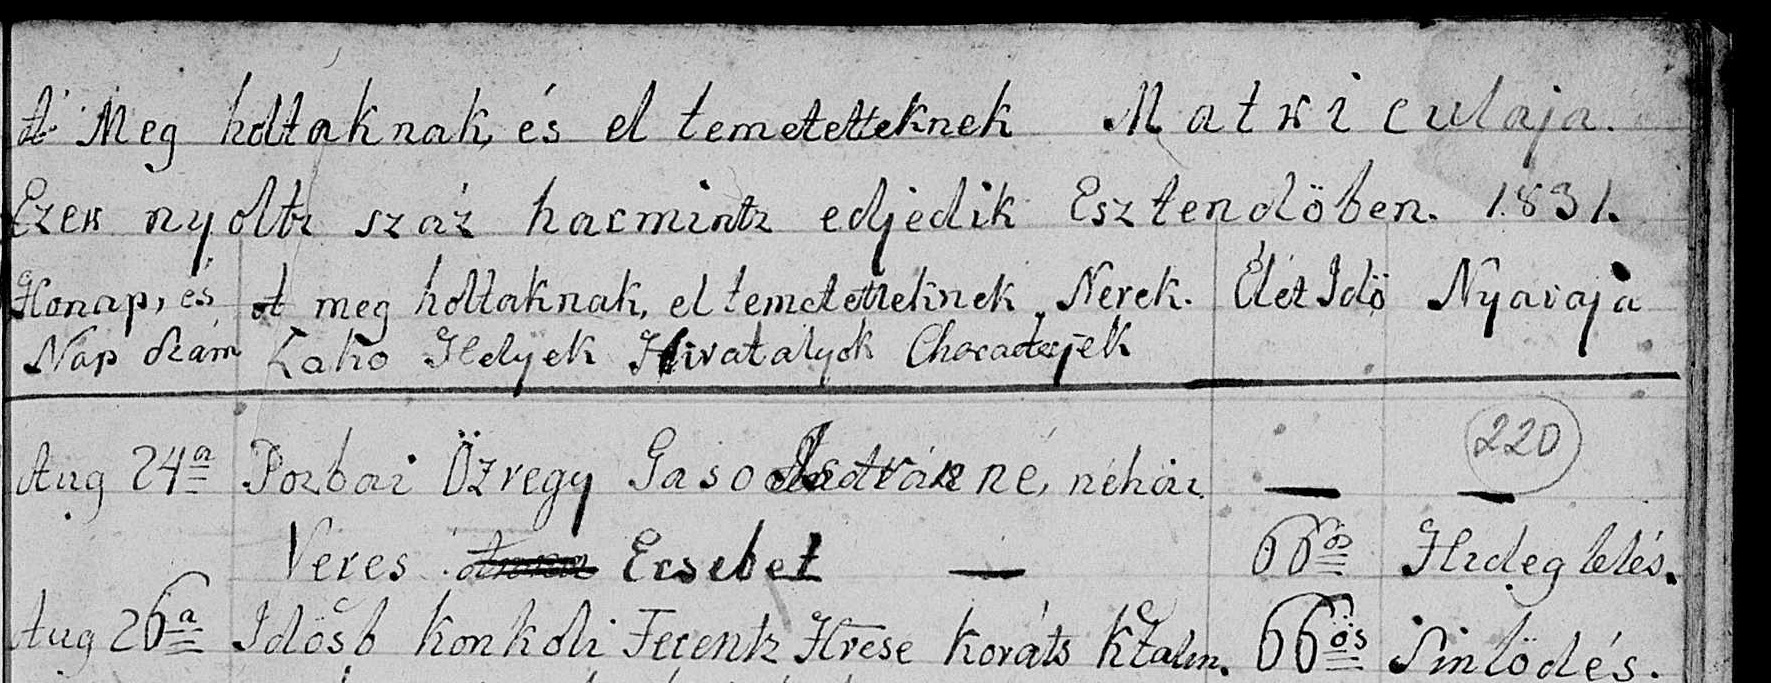 A Meg holtaknak, és el temetetteknek Matriculaja.
Ezer nyoltz száz harmintz edjedik Esztendöben. 1831.
Honap, és A meg holtaknak, el temetetteknek Nevek. Élet Idö Nyavaja
Nap szám Lako Helyek Hivatalyok Characterjek
220
Aug 24a Pozbai Özvegy Gaso Istvánné, néhai — —
Veres Ersebet — 66os Hideglelés.
Aug 26a Idösb Konkoli Ferentz Hvese Kováts Ktalin. 66ös Sinlödés.